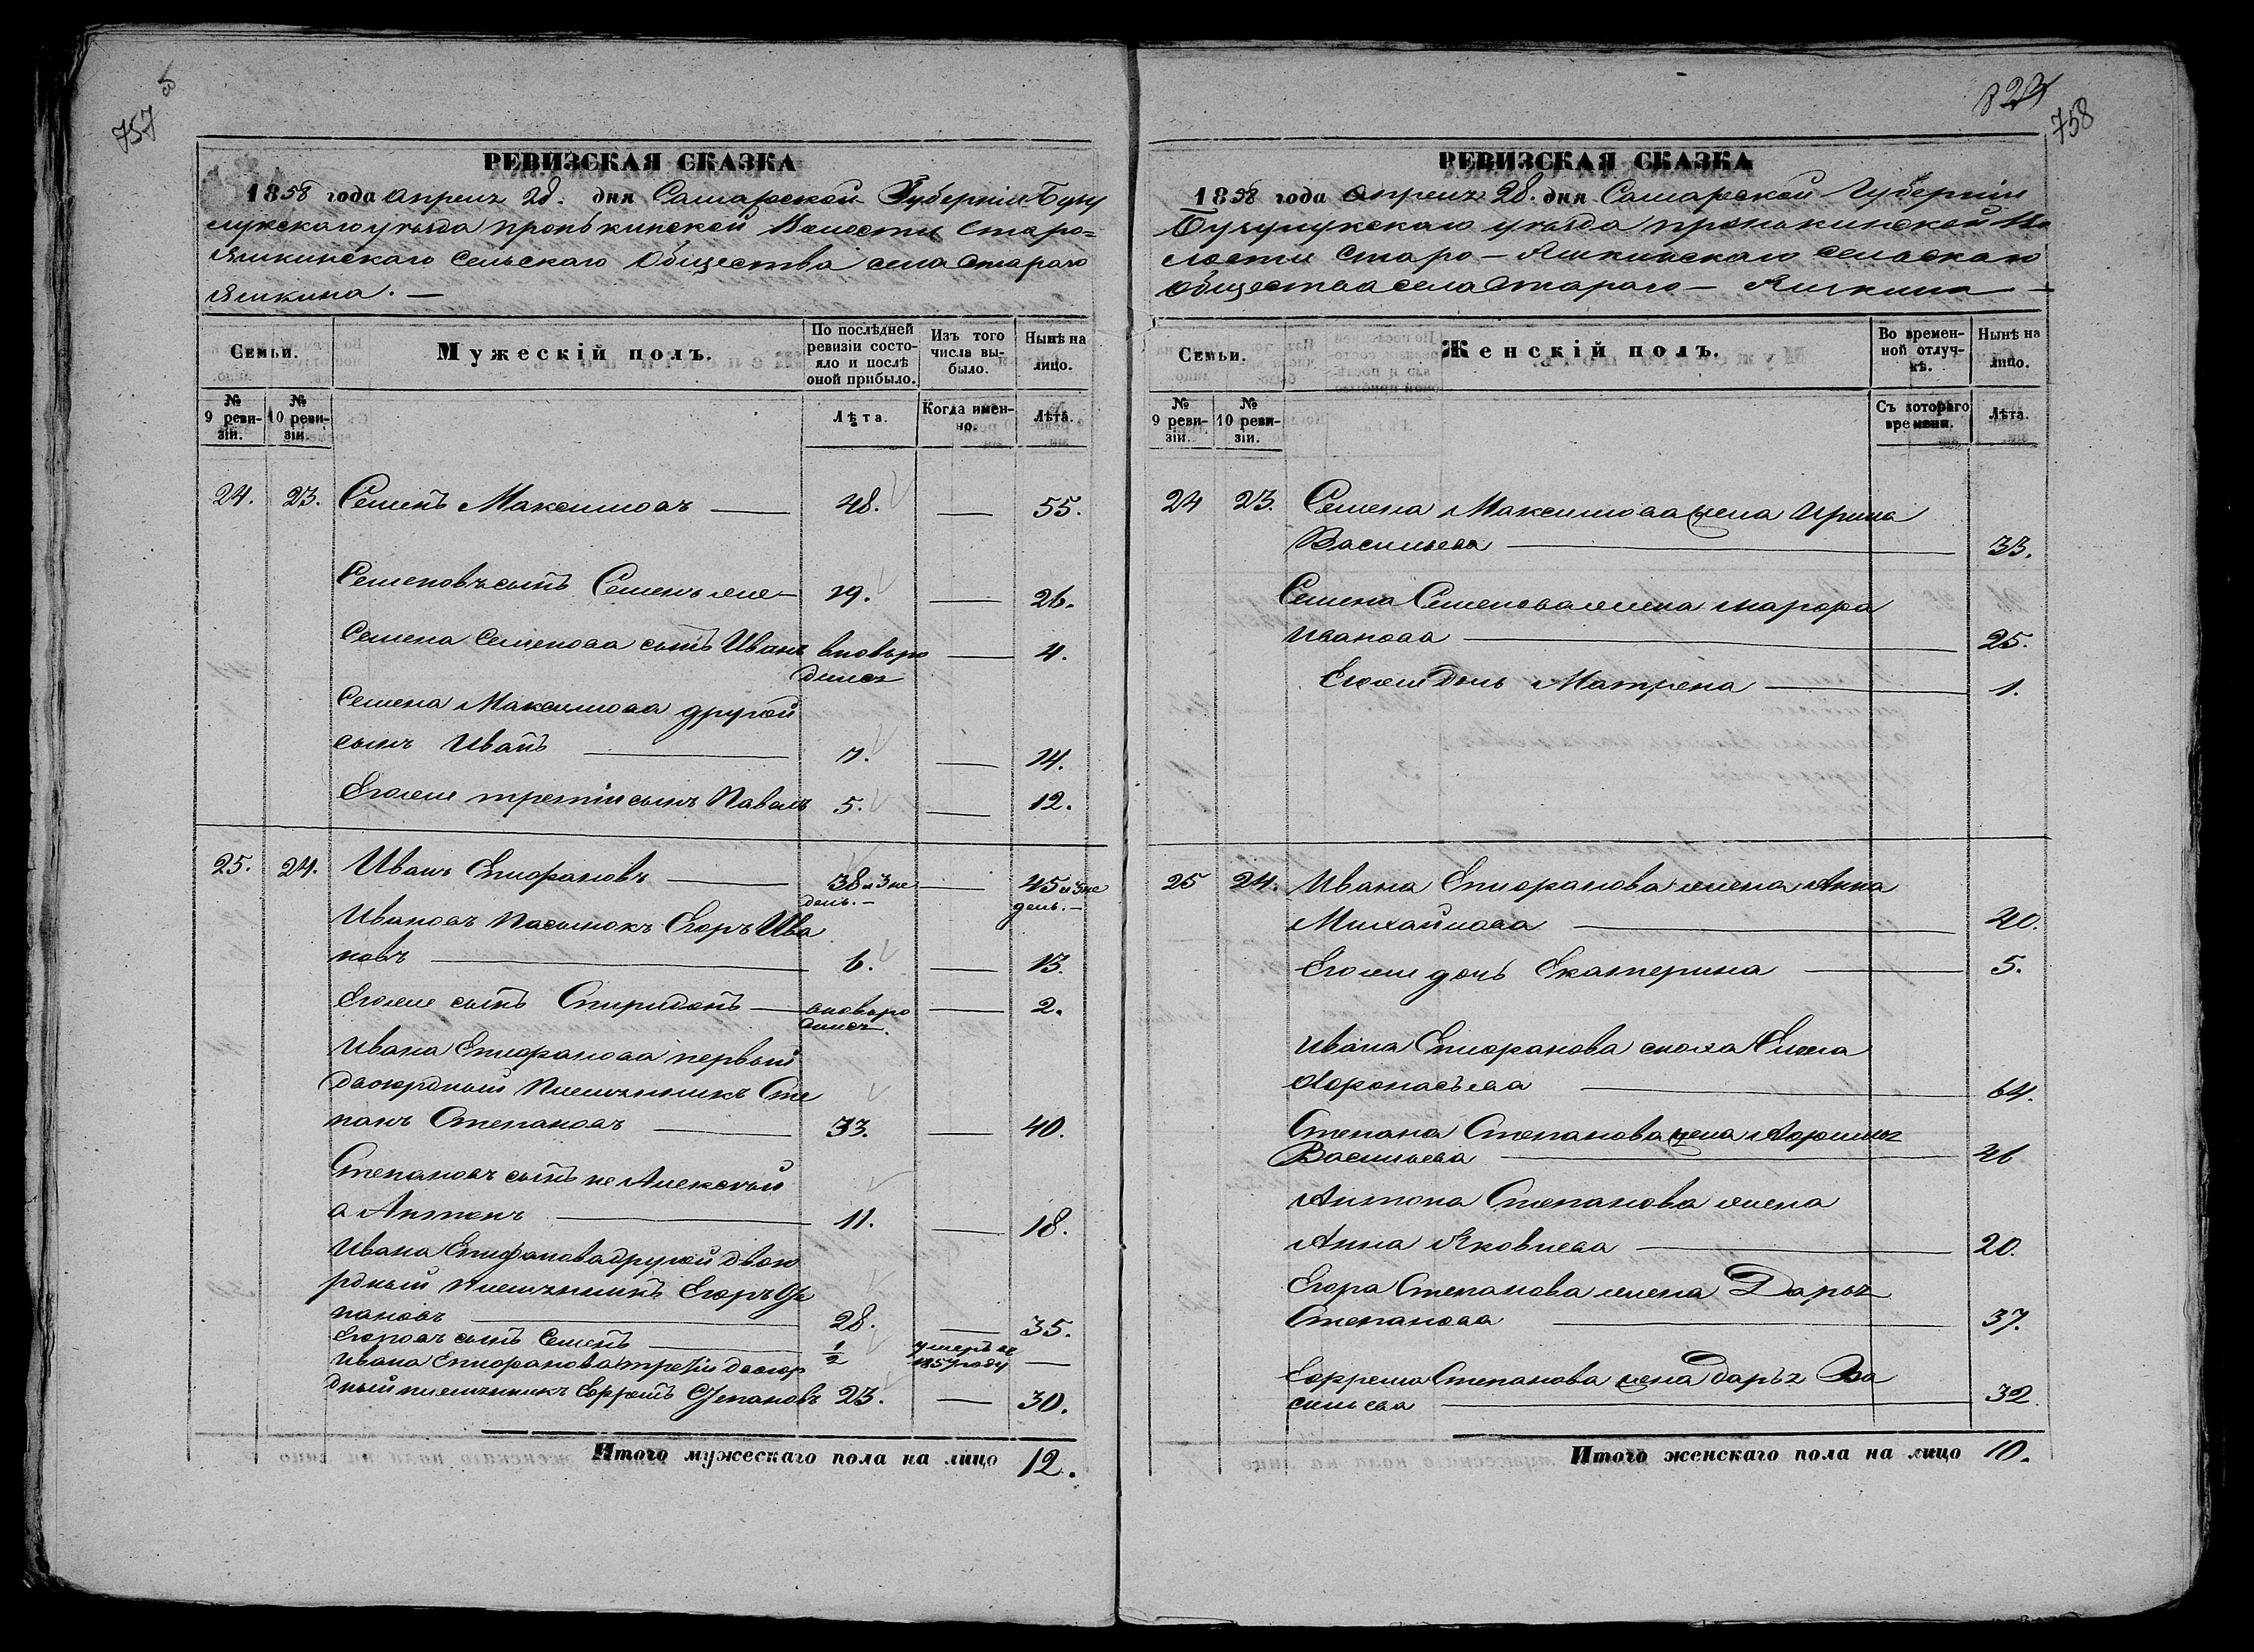 757
РЕВИЗСКАЯ СКАЗКА
1858 года апреля 28. дня Самарской Губерніи Бузу
лукскаго уѣзда пронькинской Волости Старо=
Яшкинскаго Сельскаго Общества села Стараго
Яшкина. —
Семьи.
Мужескій полъ.
По послѣдней ревизіи состояло и послѣ оной прибыло.
Изъ того числа выбыло.
Нынѣ на лицо.
№ 9 ревизіи.
№ 10 ревизіи.
Лѣта.
Когда именно.
Лѣта.
24. 23. Семенъ Максимовъ — 48. — 55.
Семеновъ сынъ Семенъ же — 19. — 26.
Семена Семенова сынъ Иванъ вновьро — 4.
дился
Семена Максимова другой
сынъ Иванъ — 7. — 14.
Егоже третій сынъ Павелъ 5. — 12.
25. 24. Иванъ Епифановъ — 38 и 3 не — 45 и 3 не
дель. — дель. —
Ивановъ пасынокъ Егоръ Ива
новъ — 6. — 13.
Егоже сынъ Спиридонъ — вновьро — 2.
дился.
Ивана Епифанова первый
двоюрдный племянникъ Сте
панъ Степановъ — 33. — 40.
Степановъ сынъ не Алексѣй
а Антонъ — 11. — 18.
Ивана Епифанова другой двою
рдный племянникъ Егоръ Сте
пановъ — 28. — 35.
Егоровъ сынъ Семенъ — 1/2 умеръ въ —
Ивана Епифанова третій двоюр 1857 году
дный племянникъ Ефремъ Степановъ 23. — 30.
Итого мужескаго пола на лицо 12.
823
758
РЕВИЗСКАЯ СКАЗКА
1858 года апреля 28. дня Самарской Губерніи
Бузулукскаго уѣзда пронькинской Во
лости Старо — Яшкинскаго Сельскаго
Общества села Стараго — Яшкина —
Семьи.
Женскій полъ.
Во временной отлучкѣ.
Нынѣ на лицо.
№ 9 ревизіи.
№ 10 ревизіи.
Съ котораго времени.
Лѣта.
24 23. Семена Максимова жена Ирина
Васильева — 33.
Семена Семенова жена Марфа
Иванова — 25.
Егоже дочь Матрена — 1.
25 24. Ивана Епифанова жена Анна
Михайлова — 40.
Егоже дочь Екатерина — 5.
Ивана Епифанова сноха
64.
Степана Степанова жена
Васильева — 46
Антона Степанова жена
Анна Яковлева — 20.
Егора Степанова жена Дарья
Степанова — 37.
Ефрема Степанова жена Дарья Ва
сильева — 32.
Итого женскаго пола на лицо 10.